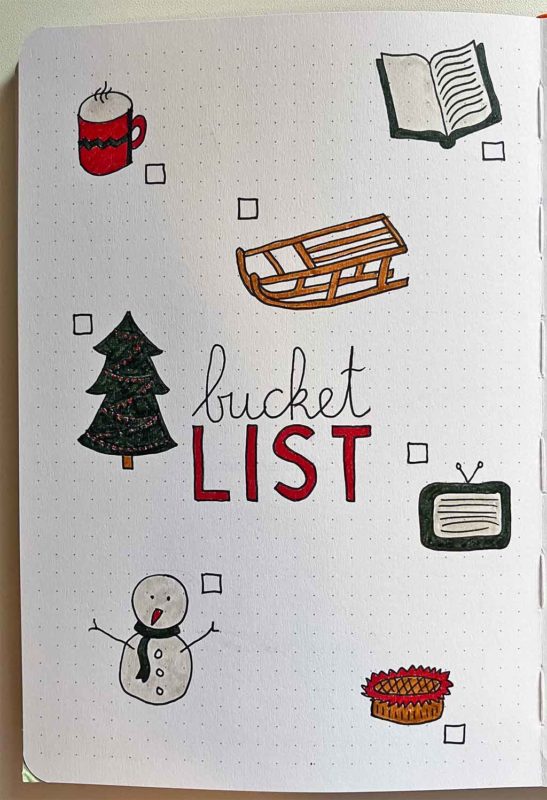 bucket
LIST